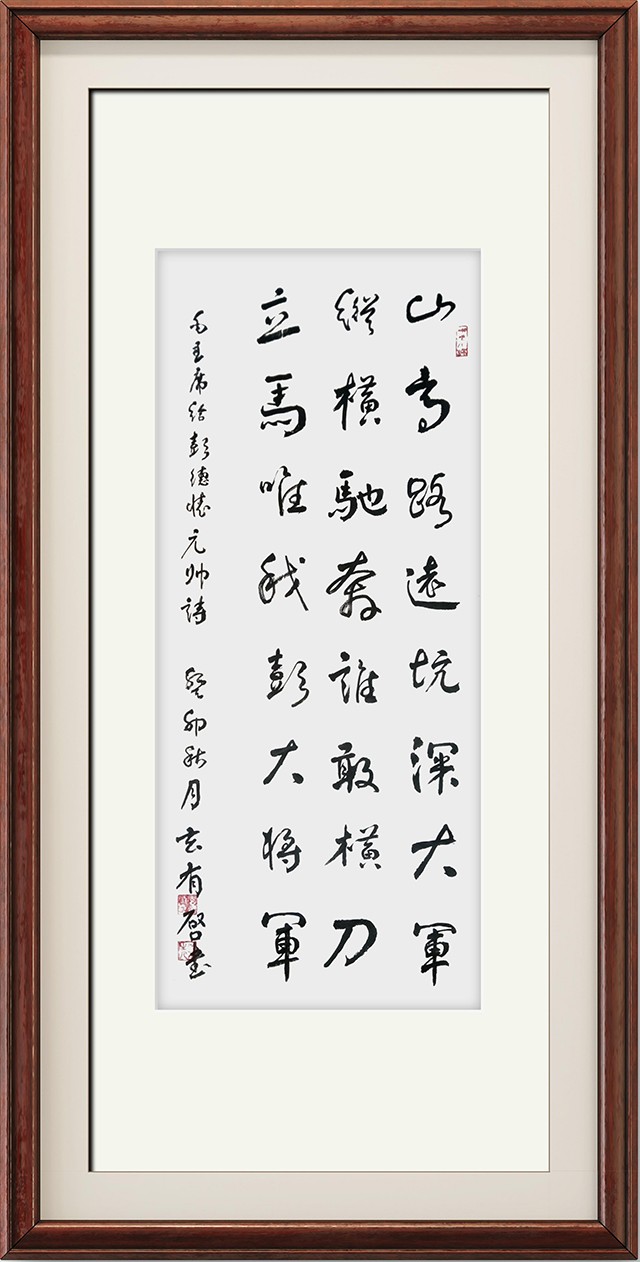 山高路遠坑深大軍
縱橫馳奔誰敢橫刀
立馬唯我彭大將軍
毛主席给彭德懷元帅詩 癸卯秋月 有啓書